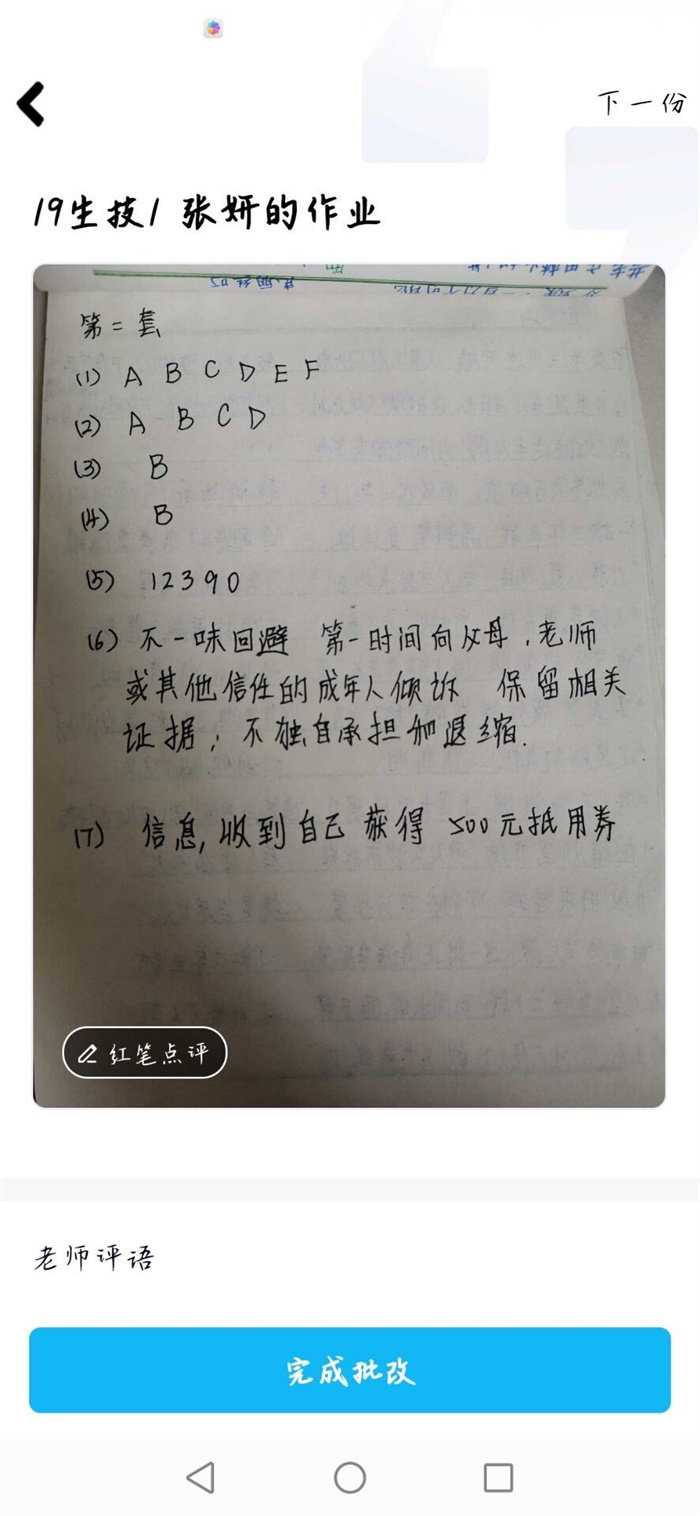 下一份
19生技1 张妍的作业
第二套
(1) A B C D E F
(2) A B C D
(3) B
(4) B
(5) 12390
(6) 不一味回避 第一时间向父母,老师
或其他信任的成年人倾诉 保留相关
证据; 不独自承担和退缩.
(7) 信息,收到自己获得 500元抵用券
红笔点评
老师评语
完成批改